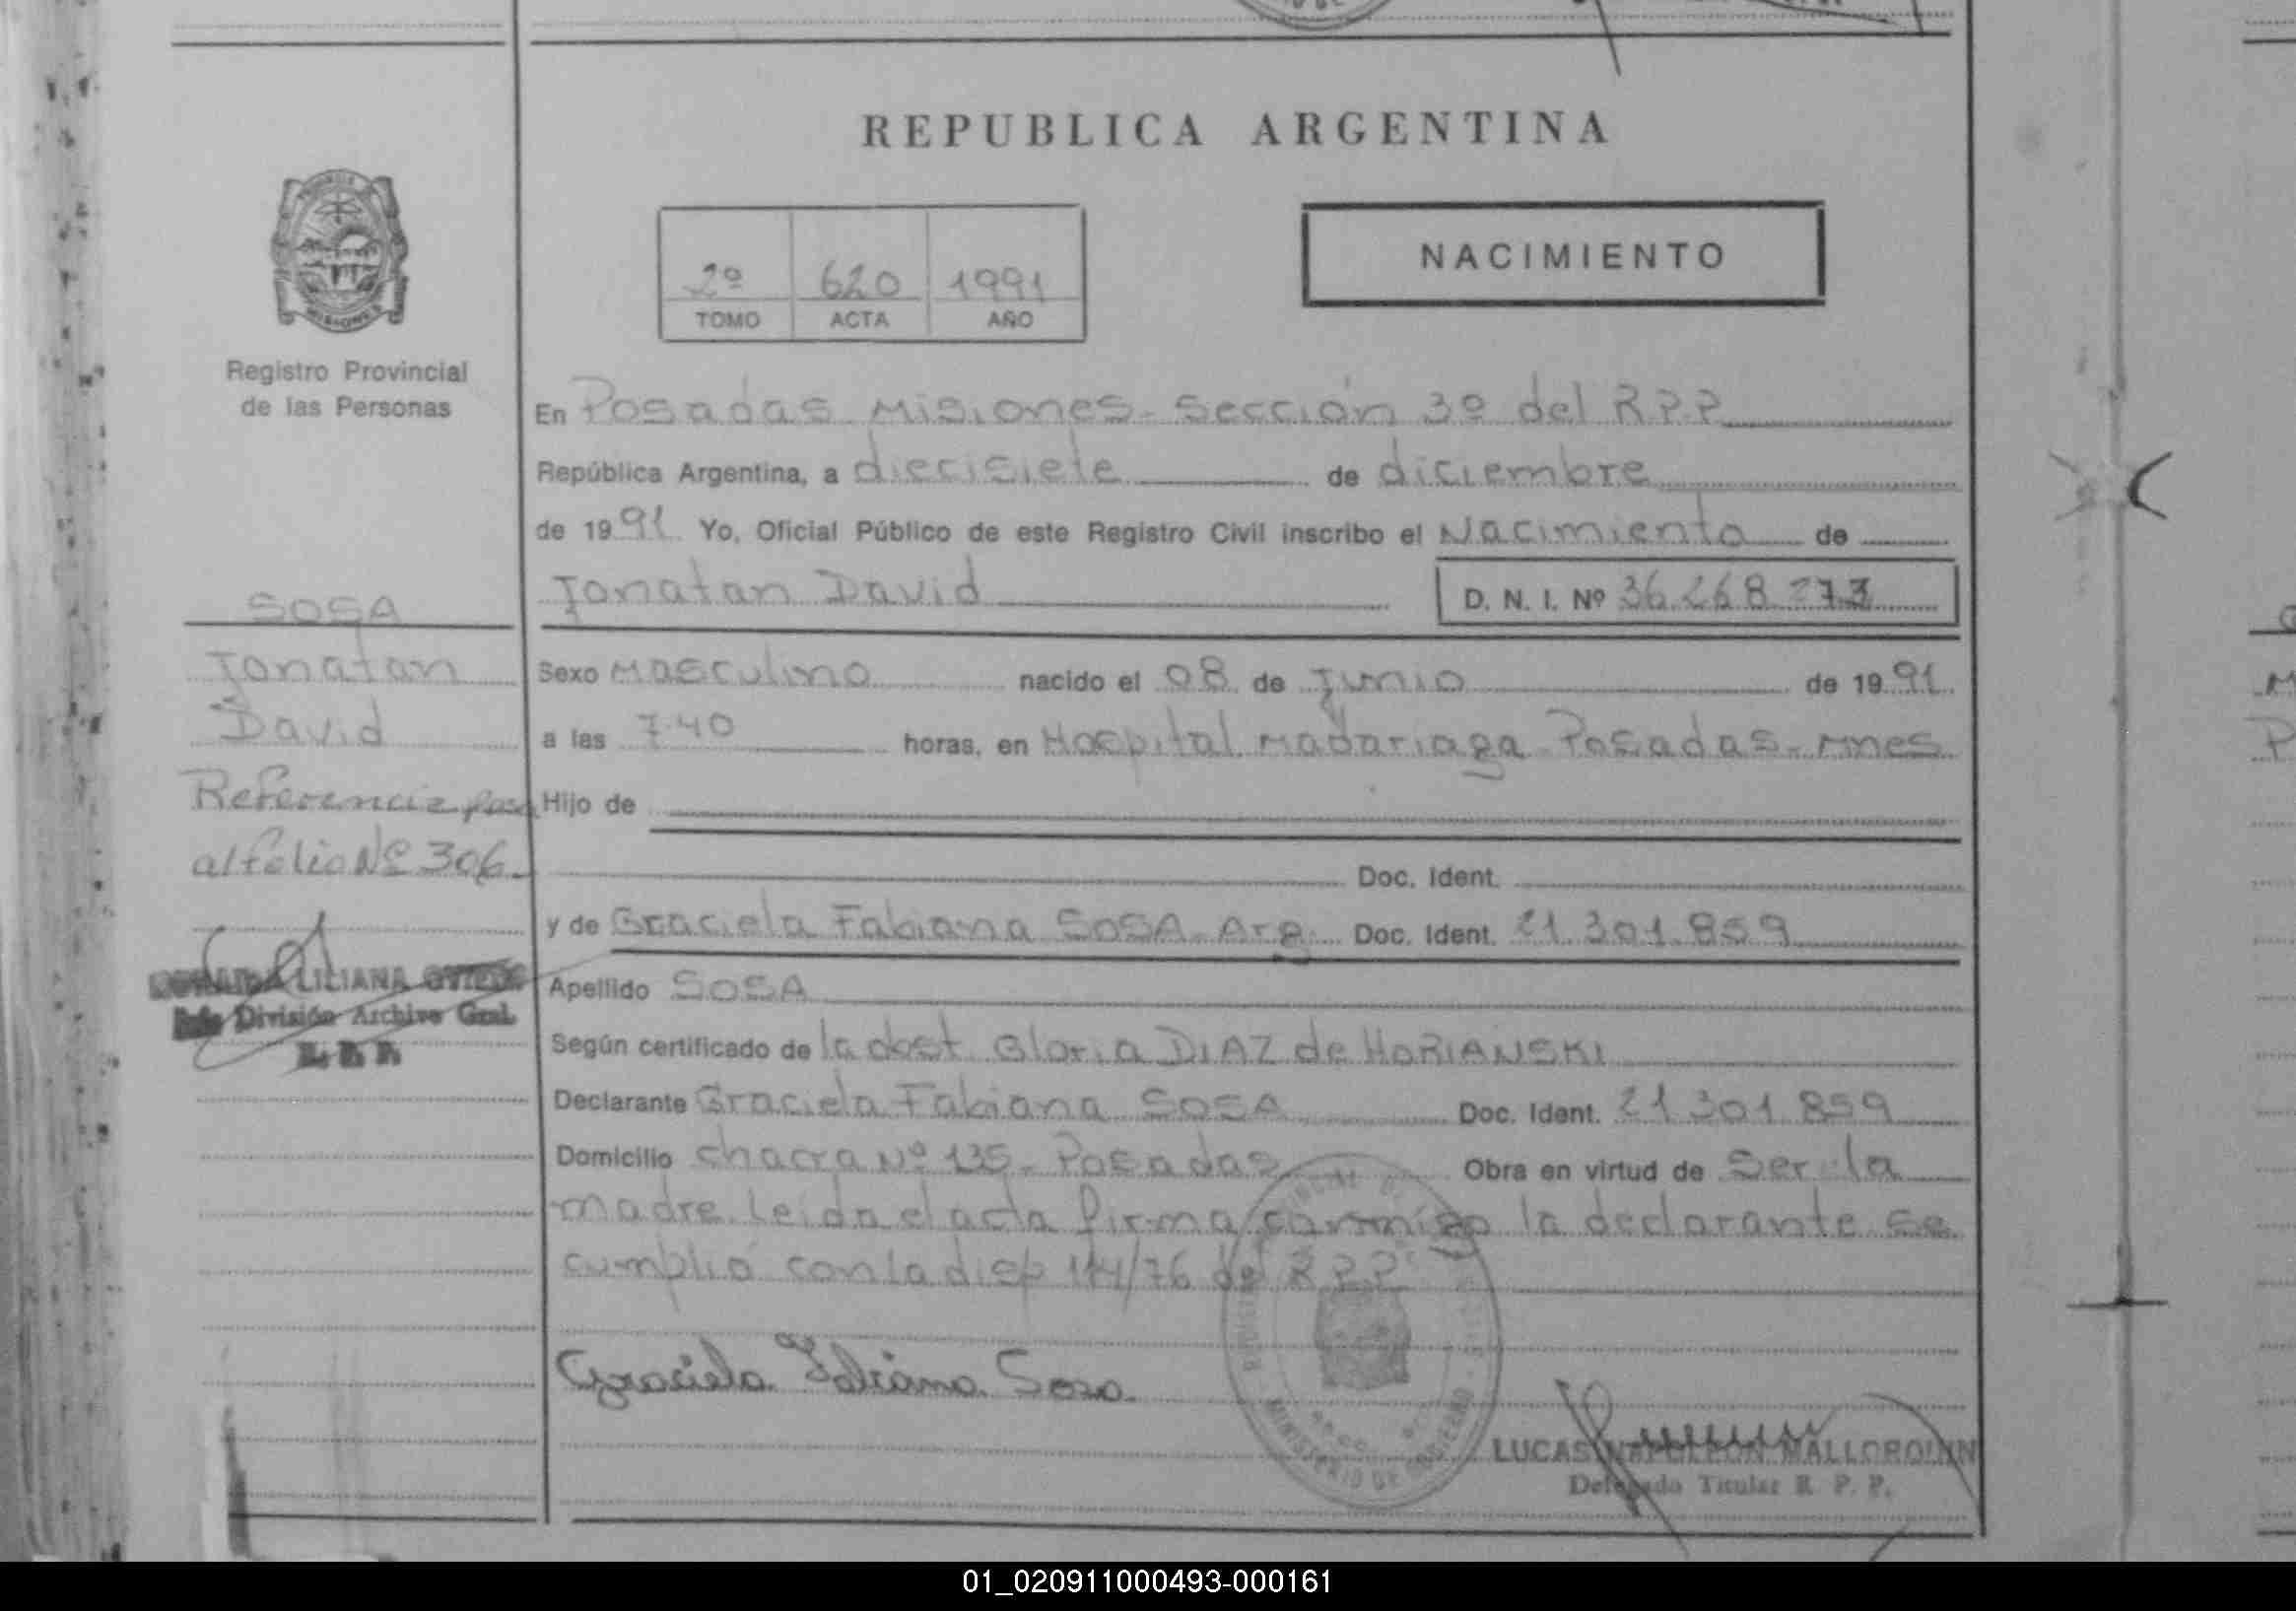 REPUBLICA ARGENTINA
NACIMIENTO
2º 620 1991
TOMO ACTA AÑO
Registro Provincial
de las Personas
En Posadas Misiones - Sección 3º del R.P.P
República Argentina, a diecisiete de diciembre
de 1991 Yo, Oficial Público de este Registro Civil inscribo el Nacimiento de
Jonatan David D. N. I. Nº 36.268.273
SOSA
Jonatan
David
Referencia pasa
al folio Nº 306.-
LILIANA OVIEDO
Jefe División Archivo Gral.
R. P. P.
Sexo Masculino nacido el 08 de Junio de 1991
a las 7.40 horas, en Hospital Madariaga Posadas - Mnes
Hijo de
Doc. Ident.
y de Graciela Fabiana SOSA Arg. Doc. Ident. 21.301.859
Apellido SOSA
Según certificado de la obst Gloria DIAZ de HORIANSKI
Declarante Graciela Fabiana SOSA Doc. Ident. 21.301.859
Domicilio chacra Nº 135 - Posadas Obra en virtud de Ser la
madre. Leída el acta firma conmigo la declarante se
cumplió con la disp 114/76 del R.P.P
Graciela Fabiana Sosa
MINISTERIO DE GOBIERNO
LUCAS NAPOLEON MALLORQUIN
Delegado Titular R. P. P.
01_020911000493-000161